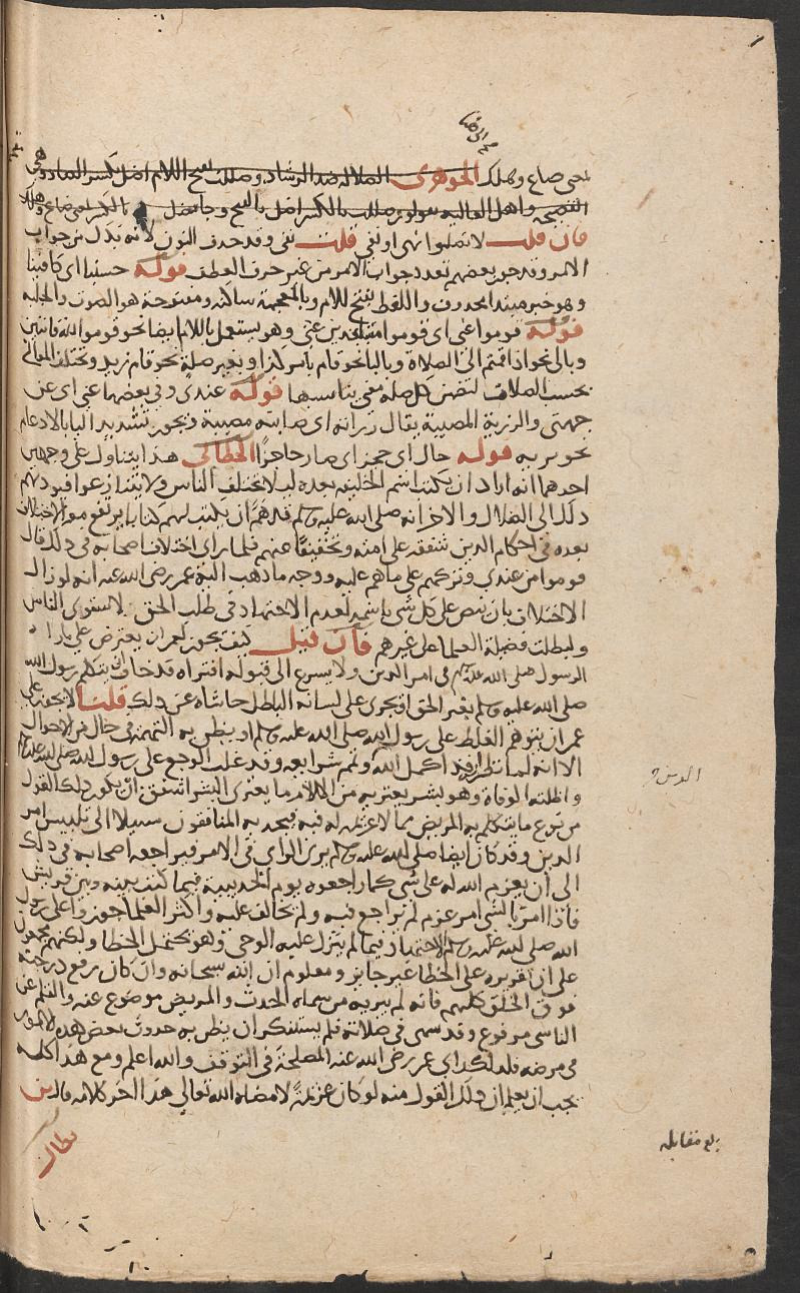 بمعنى ضاع وهلك الجوهري الضلالة ضد الرشاد وضللت بفتح اللام اضل بكسر الضاد وهي
الفصيحة واهل العالية يقولون ضللت بالكسر اضل بالفتح وجا يضل بالكسر بمعنى ضاع وهلك
فان قلت لا تضلوا نهي او نفي قلت نفي وقد حذف النون لانه بدل من جواب
الامر وقد جوز بعضهم تعدد جواب الامر من غير حرف العطف قوله حسبنا اى كافينا
وهو خبر مبتدا محذوف واللغط بفتح اللام وبالمعجمة ساكنة ومفتوحة هو الصوت والجلبة
قوله قوموا عني اى قوموا مبتعدين عني وهو يستعمل باللام ايضا نحو قوموا لله قانتين
وبالى نحو اذا قمتم الى الصلاة وبالبا نحو قام بامر كذا وبغير صلة نحو قام زيد وتختلف المعاني
بحسب الصلات لتضمن كل صلة معنى يناسبها قوله عندي وفي بعضها عني اى عن
جهتي والرزية المصيبة يقال رزاته اى اصابته مصيبة ويجوز تشديد اليا بالادغام
نحو برية قوله حال اى حجز اى صار حاجزا الخطابي هذا يتاول على وجهين
احدهما انه اراد ان يكتب اسم الخليفة بعده ليلا يختلف الناس ولا يتنازعوا فيوديهم
ذلك الى الضلال والاخر انه صلى الله عليه وسلم قد هم ان يكتب لهم كتابا يرتفع معه الاختلاف
بعده في احكام الدين شفقة على امته وتخفيفا عنهم فلما راى اختلاف اصحابه في ذلك قال
قوموا من عندي وتركهم على ما هم عليه ووجه ما ذهب اليه عمر رضي الله عنه انه لو زال
الاختلاف بان ينص على كل شي باسمه لعدم الاجتهاد في طلب الحق ولاستوى الناس
ولبطلت فضيلة العلما على غيرهم فان قيل كيف يجوز لعمران يعترض على ما راه
الرسول صلى الله عليه وسلم في امر الدين ولا يسرع الى قبوله افتراه قد خاف ان يتكلم رسول الله
صلى الله عليه وسلم بغير الحق او يجرى على لسانه الباطل حاشاه عن ذلك قلنا لا يجوز على
عمر ان يتوهم الغلط على رسول الله صلى الله عليه وسلم او يظن به التهمة في حال من الاحوال
الا انه لما نظر قد اكمل الله وتم شرايعه وقد غلب الوجع على رسول الله صلى الله عليه وسلم
الدين
واظلته الوفاة وهو بشر يعتريه من الالام ما يعترى البشر اشفق ان يكون ذلك القول
من نوع ما يتكلم به المريض مما لا عزيمة له فيه فيجد به المنافقون سبيلا الى تلبيس امر
الدين وقد كان ايضا صلى الله عليه وسلم يرى الراي في الامر فيراجعه اصحابه في ذلك
الى ان يعزم الله له على شي كما راجعوه يوم الحديبية فيما كتب بينه وبين قريش
فاذا امر بالشي امر عزم لم يراجع فيه ولم يخالف عليه واكثر العلما جوزوا على رسول
الله صلى الله عليه وسلم الاجتهاد فيما لم ينزل عليه الوحي وهو يحتمل الخطا ولكنهم مجمعون
على ان تقريره على الخطا غير جايز ومعلوم ان الله سبحانه وان كان رفع درجته
فوق الخلق كلهم فانه لم يبريه من سمات الحدث والمريض موضوع عنه والقلم عن
الناسي مرفوع وقد سهى في صلاته فلم يستنكر ان يظن به حدوث بعض هذه الامور
في مرضه فلذلك راى عمر رضي الله عنه المصلحة في التوقف والله اعلم ومع هذا كله
يجب ان يعلم ان ذلك القول منه لو كان عزيمة لامضاه الله تعالى هذا اخر كلامه قال ابن
بطال
بلغ مقابلة